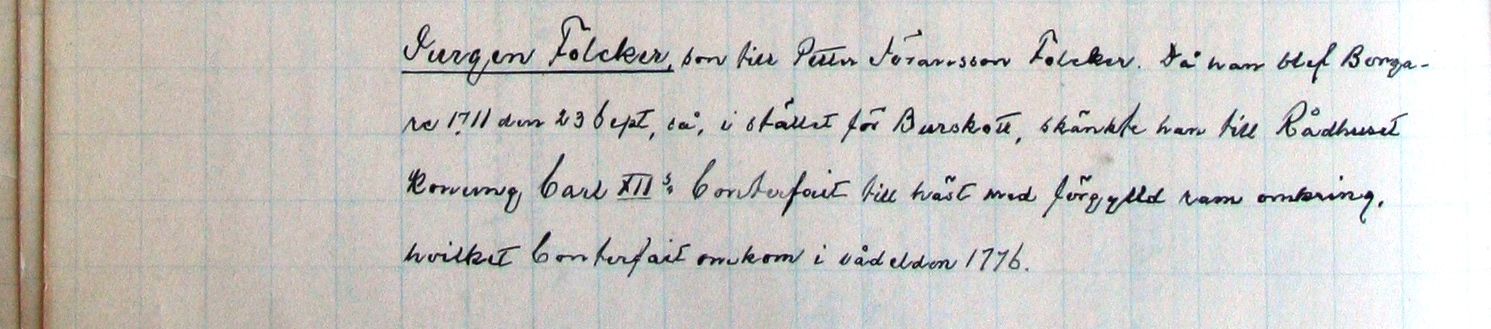 Jurgen Fölcker, son till Petter Jöransson Fölcker. Då han blef Borga-
re 1711 den 23 Sept, så, i stället för Burskott, skänkte han till Rådhuset
Konung Carl XII:s Conterfait till häst med förgylld ram omkring,
hvilket Conterfait omkom i vådelden 1776.